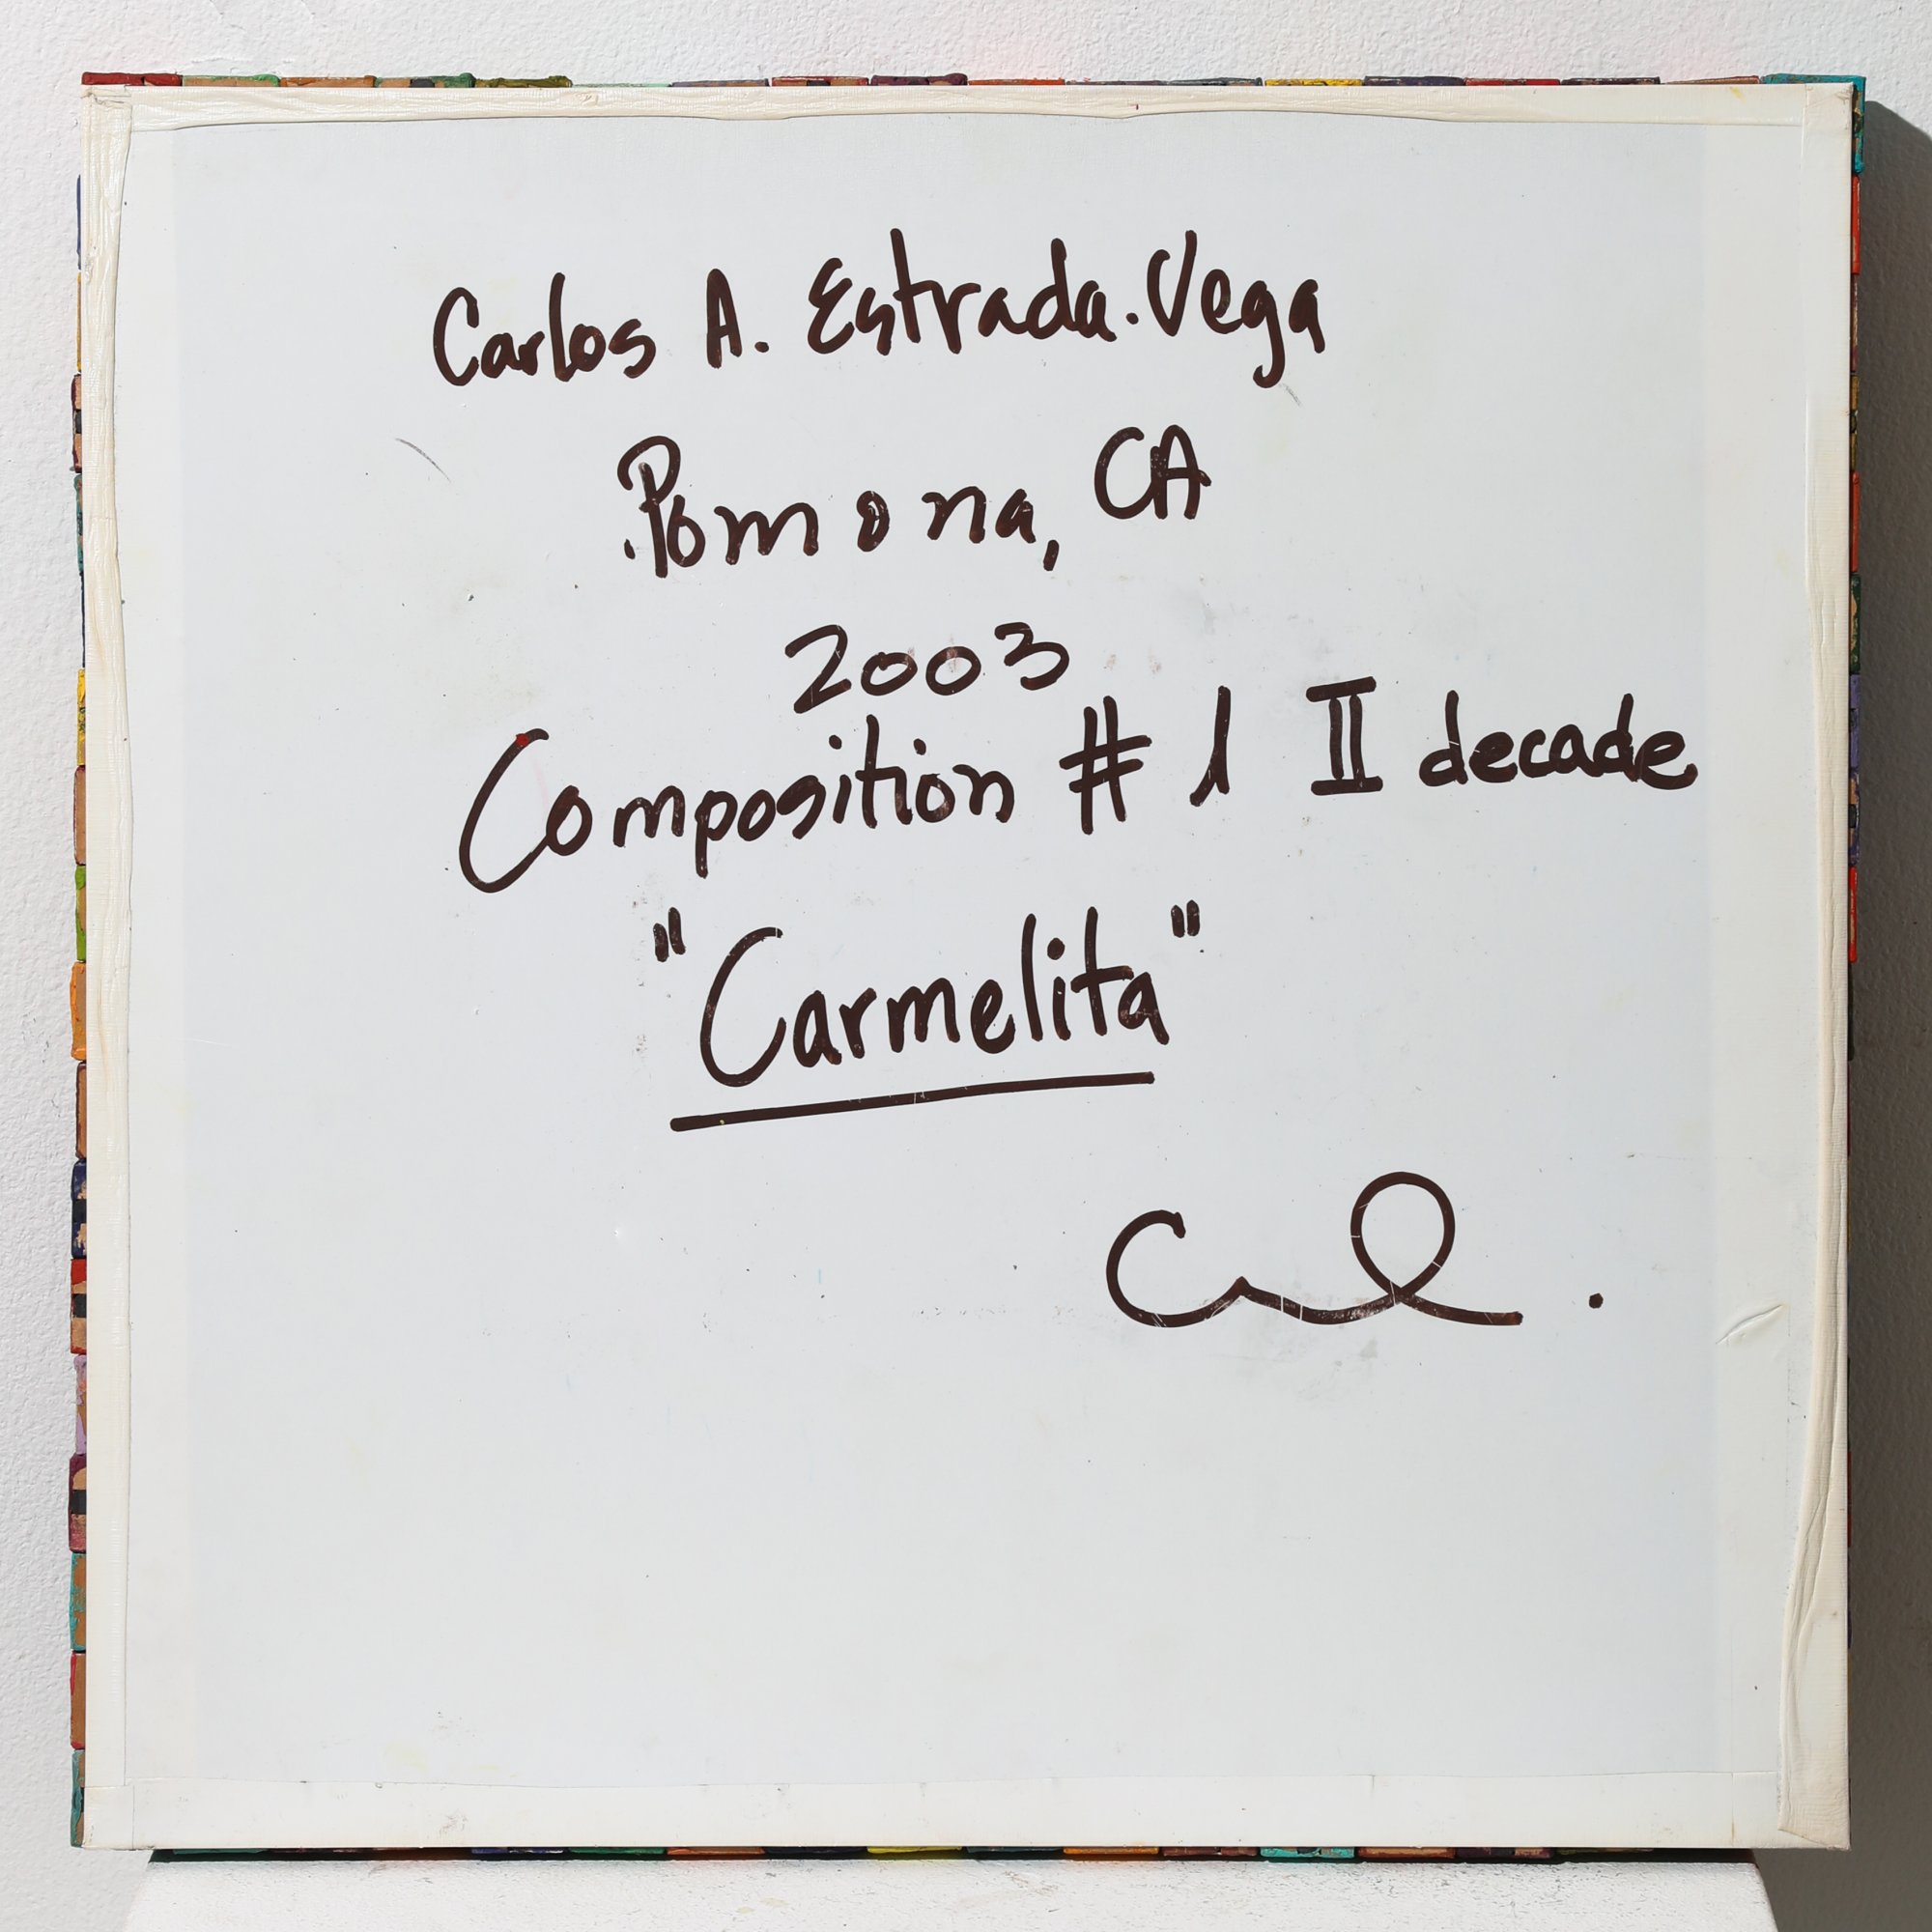 Carlos A. Estrada.Vega
Pomona, CA
2003
Composition # 1 II decade
"Carmelita"